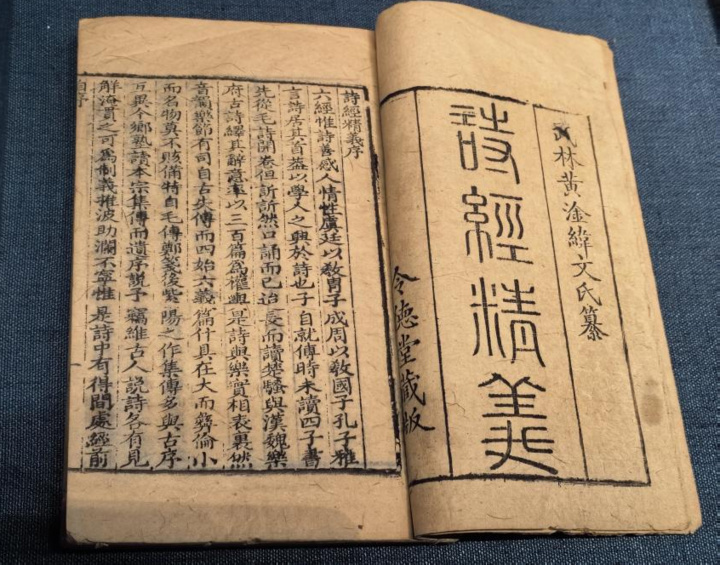 武林黄淦緯文氏纂
詩經精義
令德堂藏版
詩經精義序
六經惟詩善感人情性虞廷以敎冑子成周以敎國子孔子雅
言詩居其首葢以學人之興於詩也子自就傅時未讀四子書
先從毛詩開卷但訢訢然口誦而已迨長而讀楚騷與漢魏樂
府古詩繹其辭意率以三百篇爲權輿是詩與樂實相表裏然
音韻樂節有司自古失傳而四始六義篇什具在大而彛倫小
而名物莫不賅備特自毛傳鄭箋後紫陽之作集傳多與古序
互異今鄉塾讀本宗集傳而遺序說予竊維古人說詩各有見
解淹貫之可爲制義推波助瀾不寧惟是詩中有得間處經前